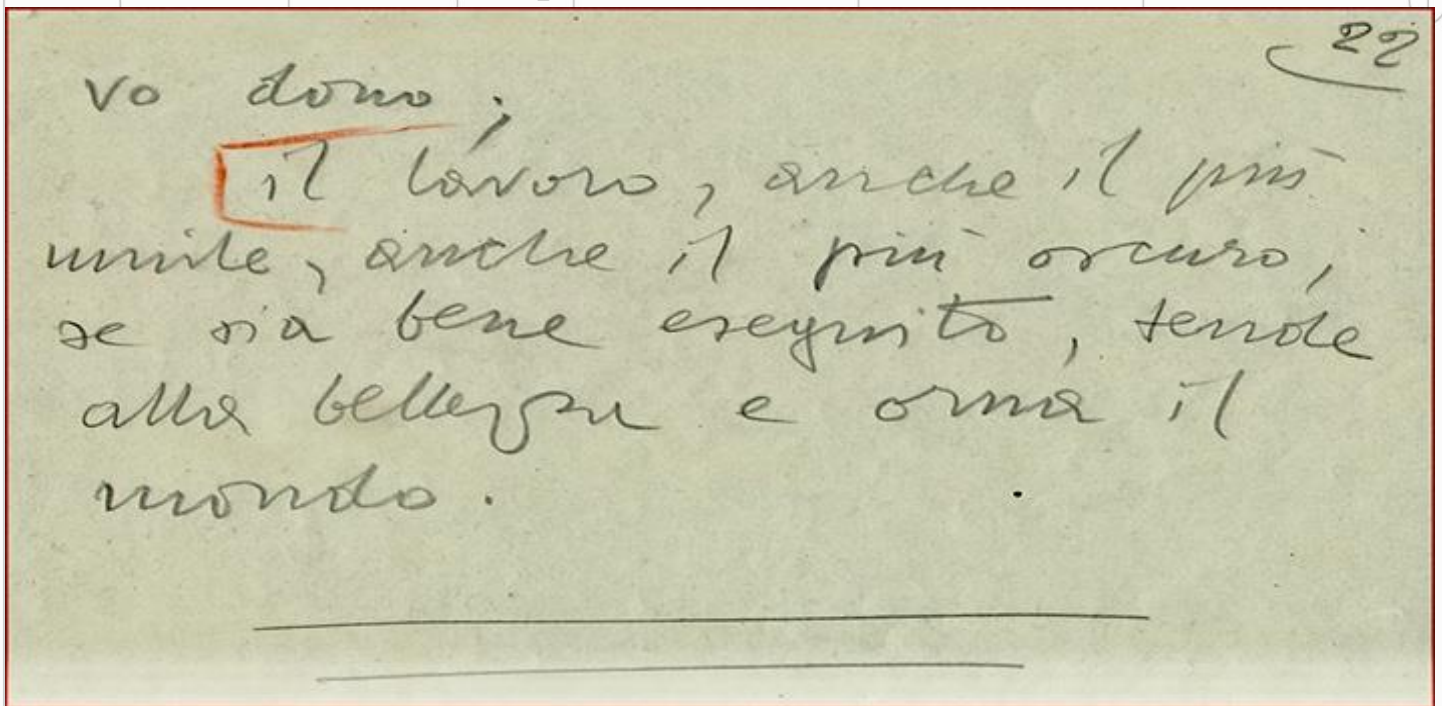 22
vo dono;
il lavoro, anche il più
umile, anche il più oscuro,
se sia bene eseguito, tende
alla bellezza e orna il
mondo.